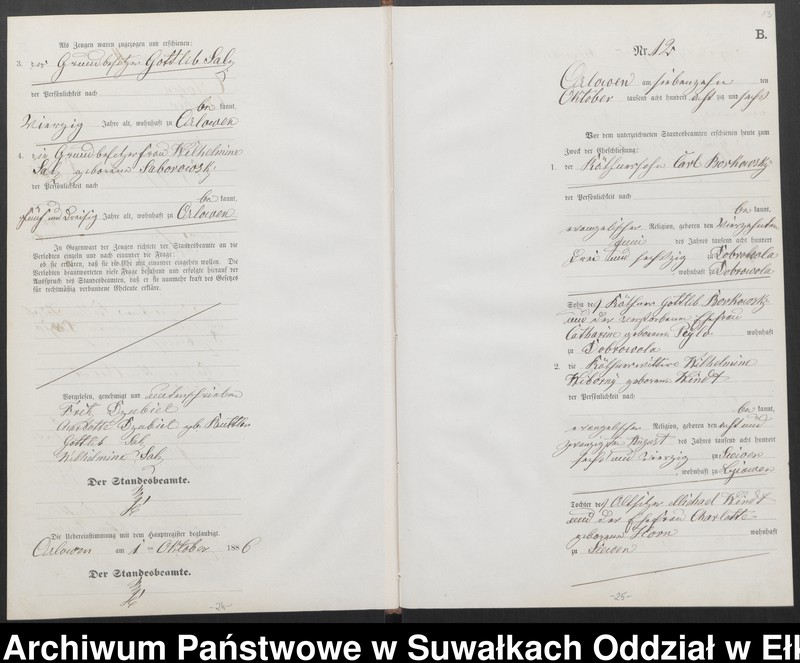 Als Zeugen waren zugezogen und erschienen:
3. der Grundbesitzer Gottlieb Salz
der Persönlichkeit nach
be kannt,
Vierzig Jahre alt, wohnhaft zu Orlowen
4. die Grundbesitzerfrau Wilhelmine
Salz geborene Saborowski
der Persönlichkeit nach
be kannt,
fünf und dreißig Jahre alt, wohnhaft zu Orlowen
In Gegenwart der Zeugen richtete der Standesbeamte an die
Verlobten einzeln und nach einander die Frage:
ob sie erklären, daß sie die Ehe mit einander eingehen wollen. Die
Verlobten beantworteten diese Frage bejahend und erfolgte hierauf der
Ausspruch des Standesbeamten, daß er sie nunmehr kraft des Gesetzes
für rechtmäßig verbundene Eheleute erkläre.
Vorgelesen, genehmigt und unterschrieben
Fritz
Charlotte geb.
Gottlieb Salz
Wilhelmine Salz
Der Standesbeamte.
Die Uebereinstimmung mit dem Hauptregister beglaubigt.
Orlowen am 1 ten Oktober 1886
Der Standesbeamte.
-24-
13
B.
Nr. 12
Orlowen am siebenzehn ten
Oktober tausend acht hundert acht zig und sechs
Vor dem unterzeichneten Standesbeamten erschienen heute zum
Zweck der Eheschließung:
1. der Käthnersohn Carl Borkowski
der Persönlichkeit nach
be kannt,
evangelischer Religion, geboren den vierzehnten
Juni des Jahres tausend acht hundert
drei und sechszig zu Dobrowola
wohnhaft zu Dobrowola
Sohn des Käthner Gottlieb Borkowski
und der verstorbenen Ehefrau
Catharine geborene wohnhaft
zu Dobrowola
2. die Käthnerwittwe Wilhelmine
Wiborny geborene Kindt
der Persönlichkeit nach
be kannt,
evangelischer Religion, geboren den acht und
zwanzigsten August des Jahres tausend acht hundert
sechs und vierzig zu
wohnhaft zu
Tochter des Altsitzer Michael Kindt
und der Ehefrau Charlotte
geborene Horn wohnhaft
zu
-25-
Archiwum Państwowe w Suwałkach Oddział w Ełk